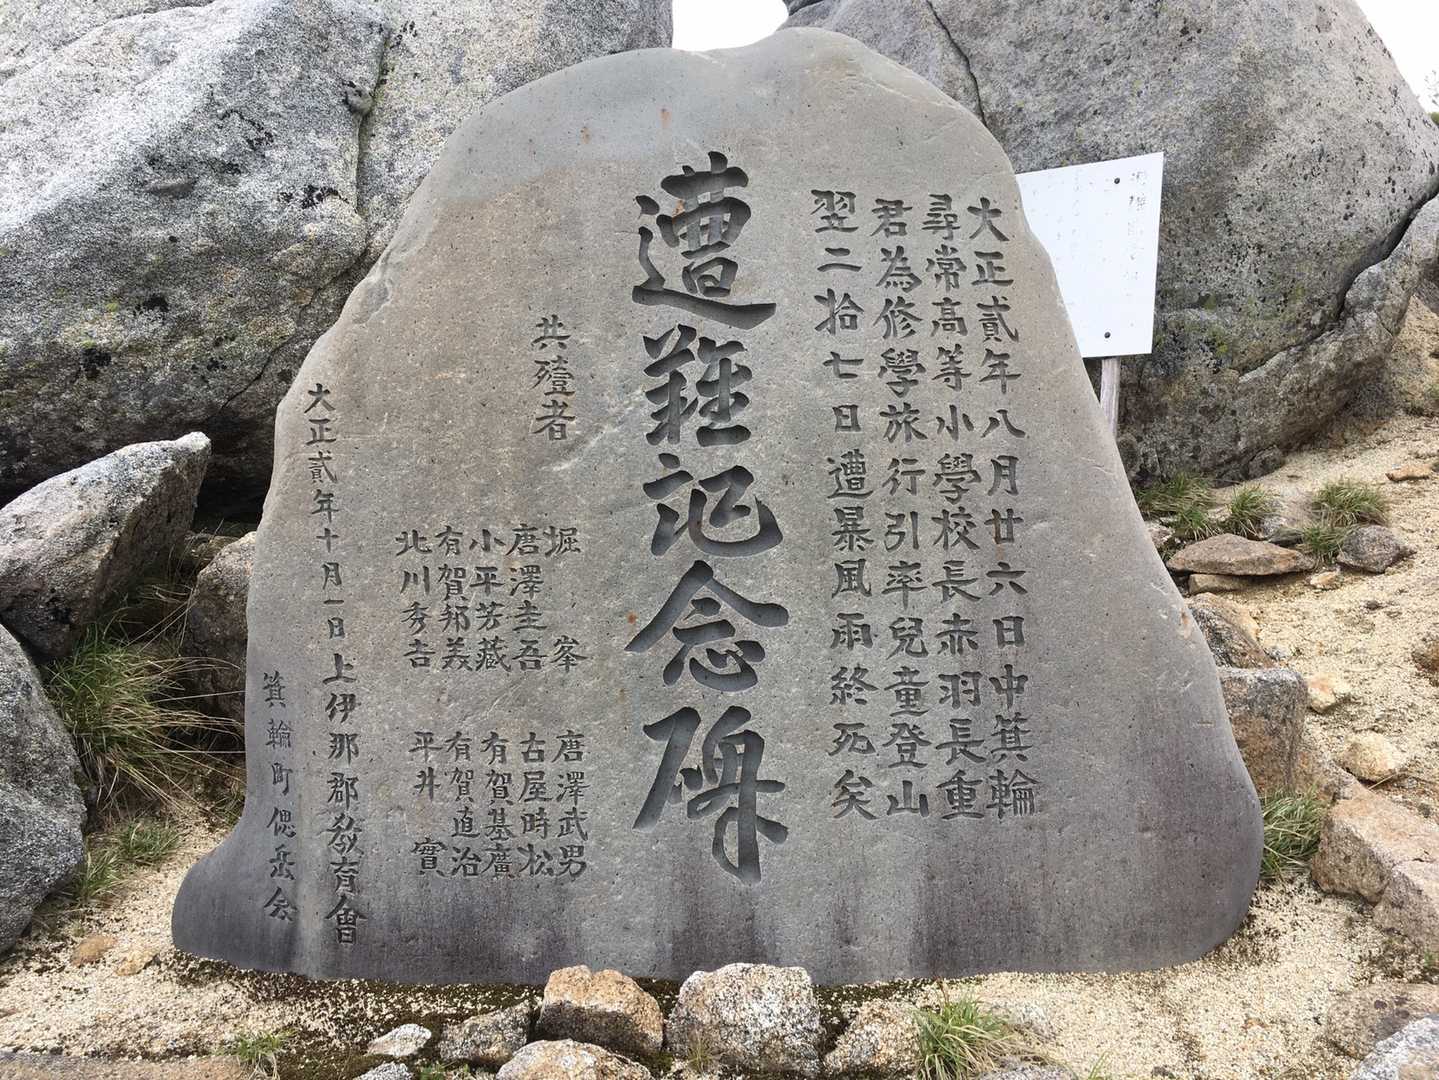 大正貳年八月廿六日中箕輪
尋常高等小學校長赤羽長重
君為修學旅行引率兒童登山
翌二拾七日遭暴風雨終死矣
遭難記念碑
共殪者
堀 峯
唐澤武男
唐澤圭吾
古屋時松
小平芳藏
有賀基廣
有賀邦美
有賀直治
北川秀吉
平井 實
大正貳年十月一日上伊那郡敎育會
箕輪町偲岳会